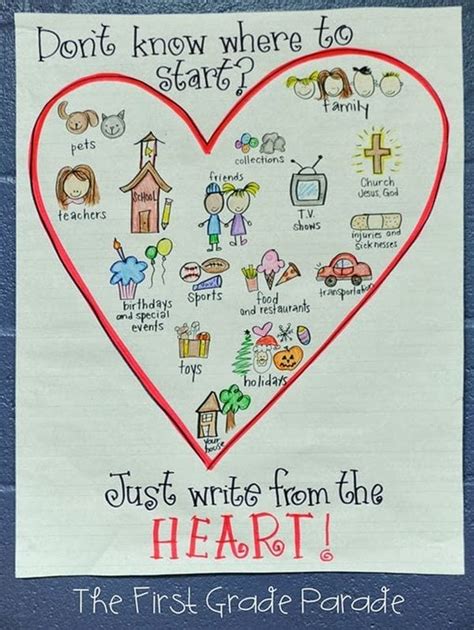 Don't know where to
start?
family
pets
collections
teachers
SCHOOL
friends
T.V.
shows
Church
Jesus, God
injuries and
sicknesses
birthdays
and special
events
sports
food
and restaurants
transportation
toys
holidays
your
house
Just write from the
HEART!
The First Grade Parade